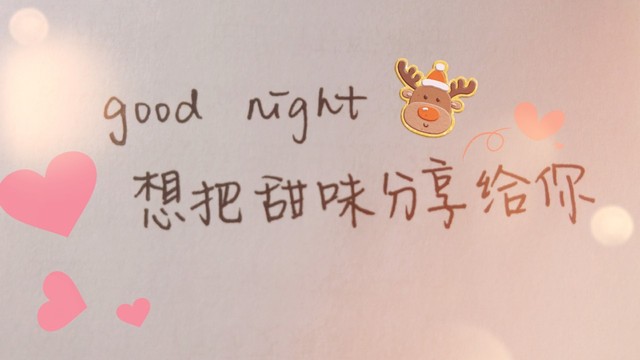 good night
想把甜味分享给你